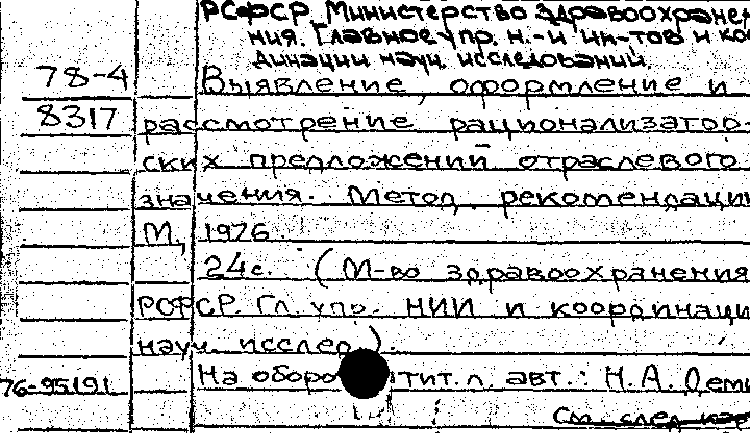 РСФСР. Министерство здравоохране
ния. Главное упр. н.-и ин-тов и коо
динации науч. исследований.
78-4 Выявление, оформление и
8317 рассмотрение рационализатор-
ских предложений отраслевого
значения. Метод. рекомендаци
М., 1976
24с. (М-во здравоохранения
РСФСР. Гл. упр. НИИ и координаци
науч. исслед.).
76-95191 На оборо тит. л. авт.: Н.А. Деми
См. след